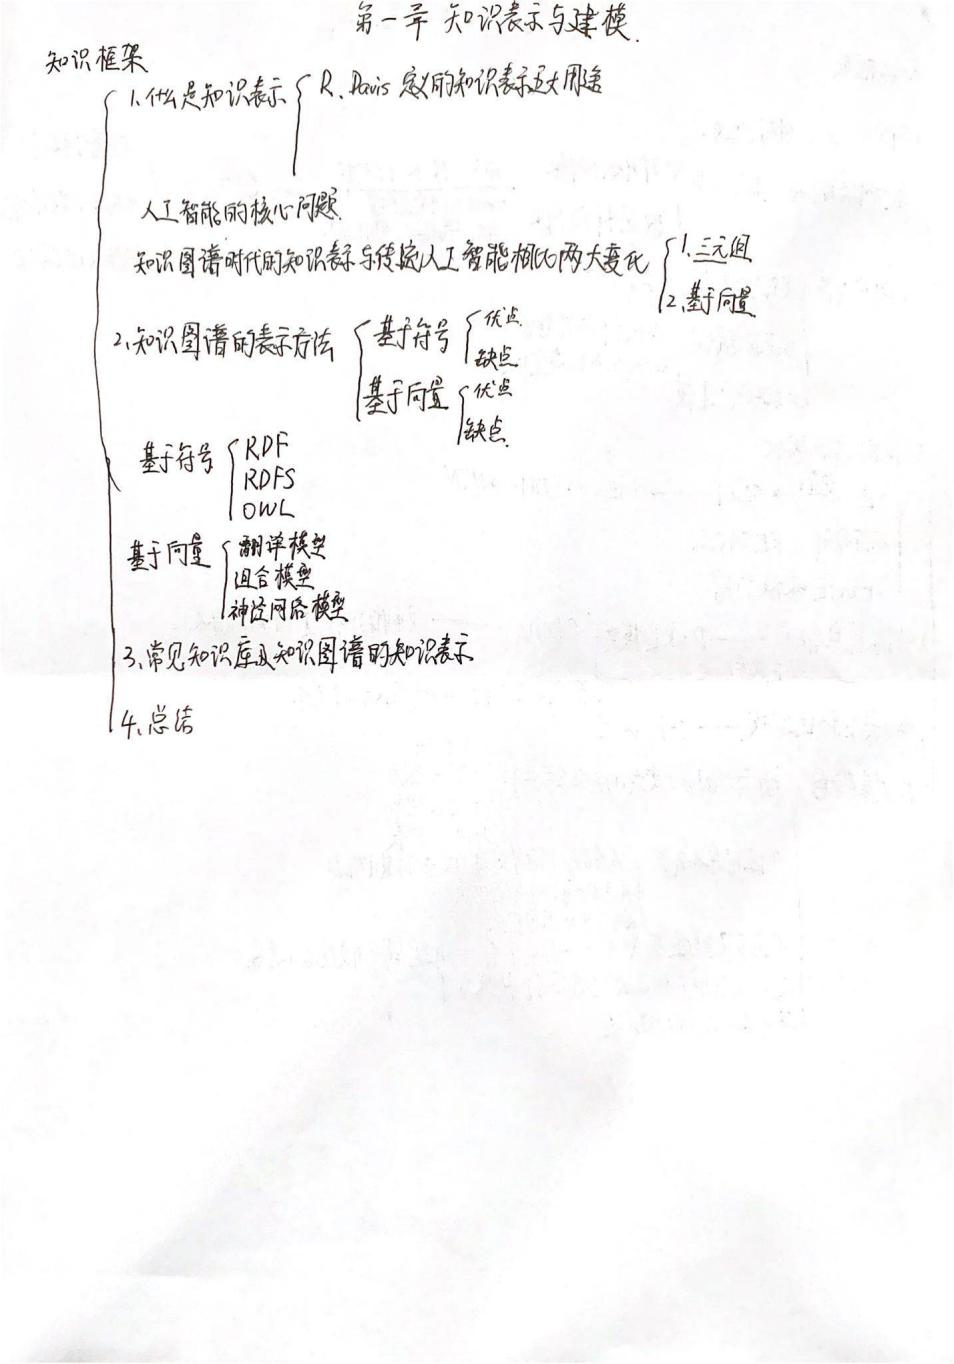 第一章 知识表示与建模.
知识框架
1.什么是知识表示 R.Davis 定义的知识表示五大用途
人工智能的核心问题.
知识图谱时代的知识表示与传统人工智能相比两大变化
1.三元组
2.基于向量
2.知识图谱的表示方法
基于符号
优点.
缺点
基于向量
优点
缺点.
基于符号
RDF
RDFS
OWL
基于向量
翻译模型
组合模型
神经网络模型
3.常见知识库及知识图谱的知识表示
4.总结